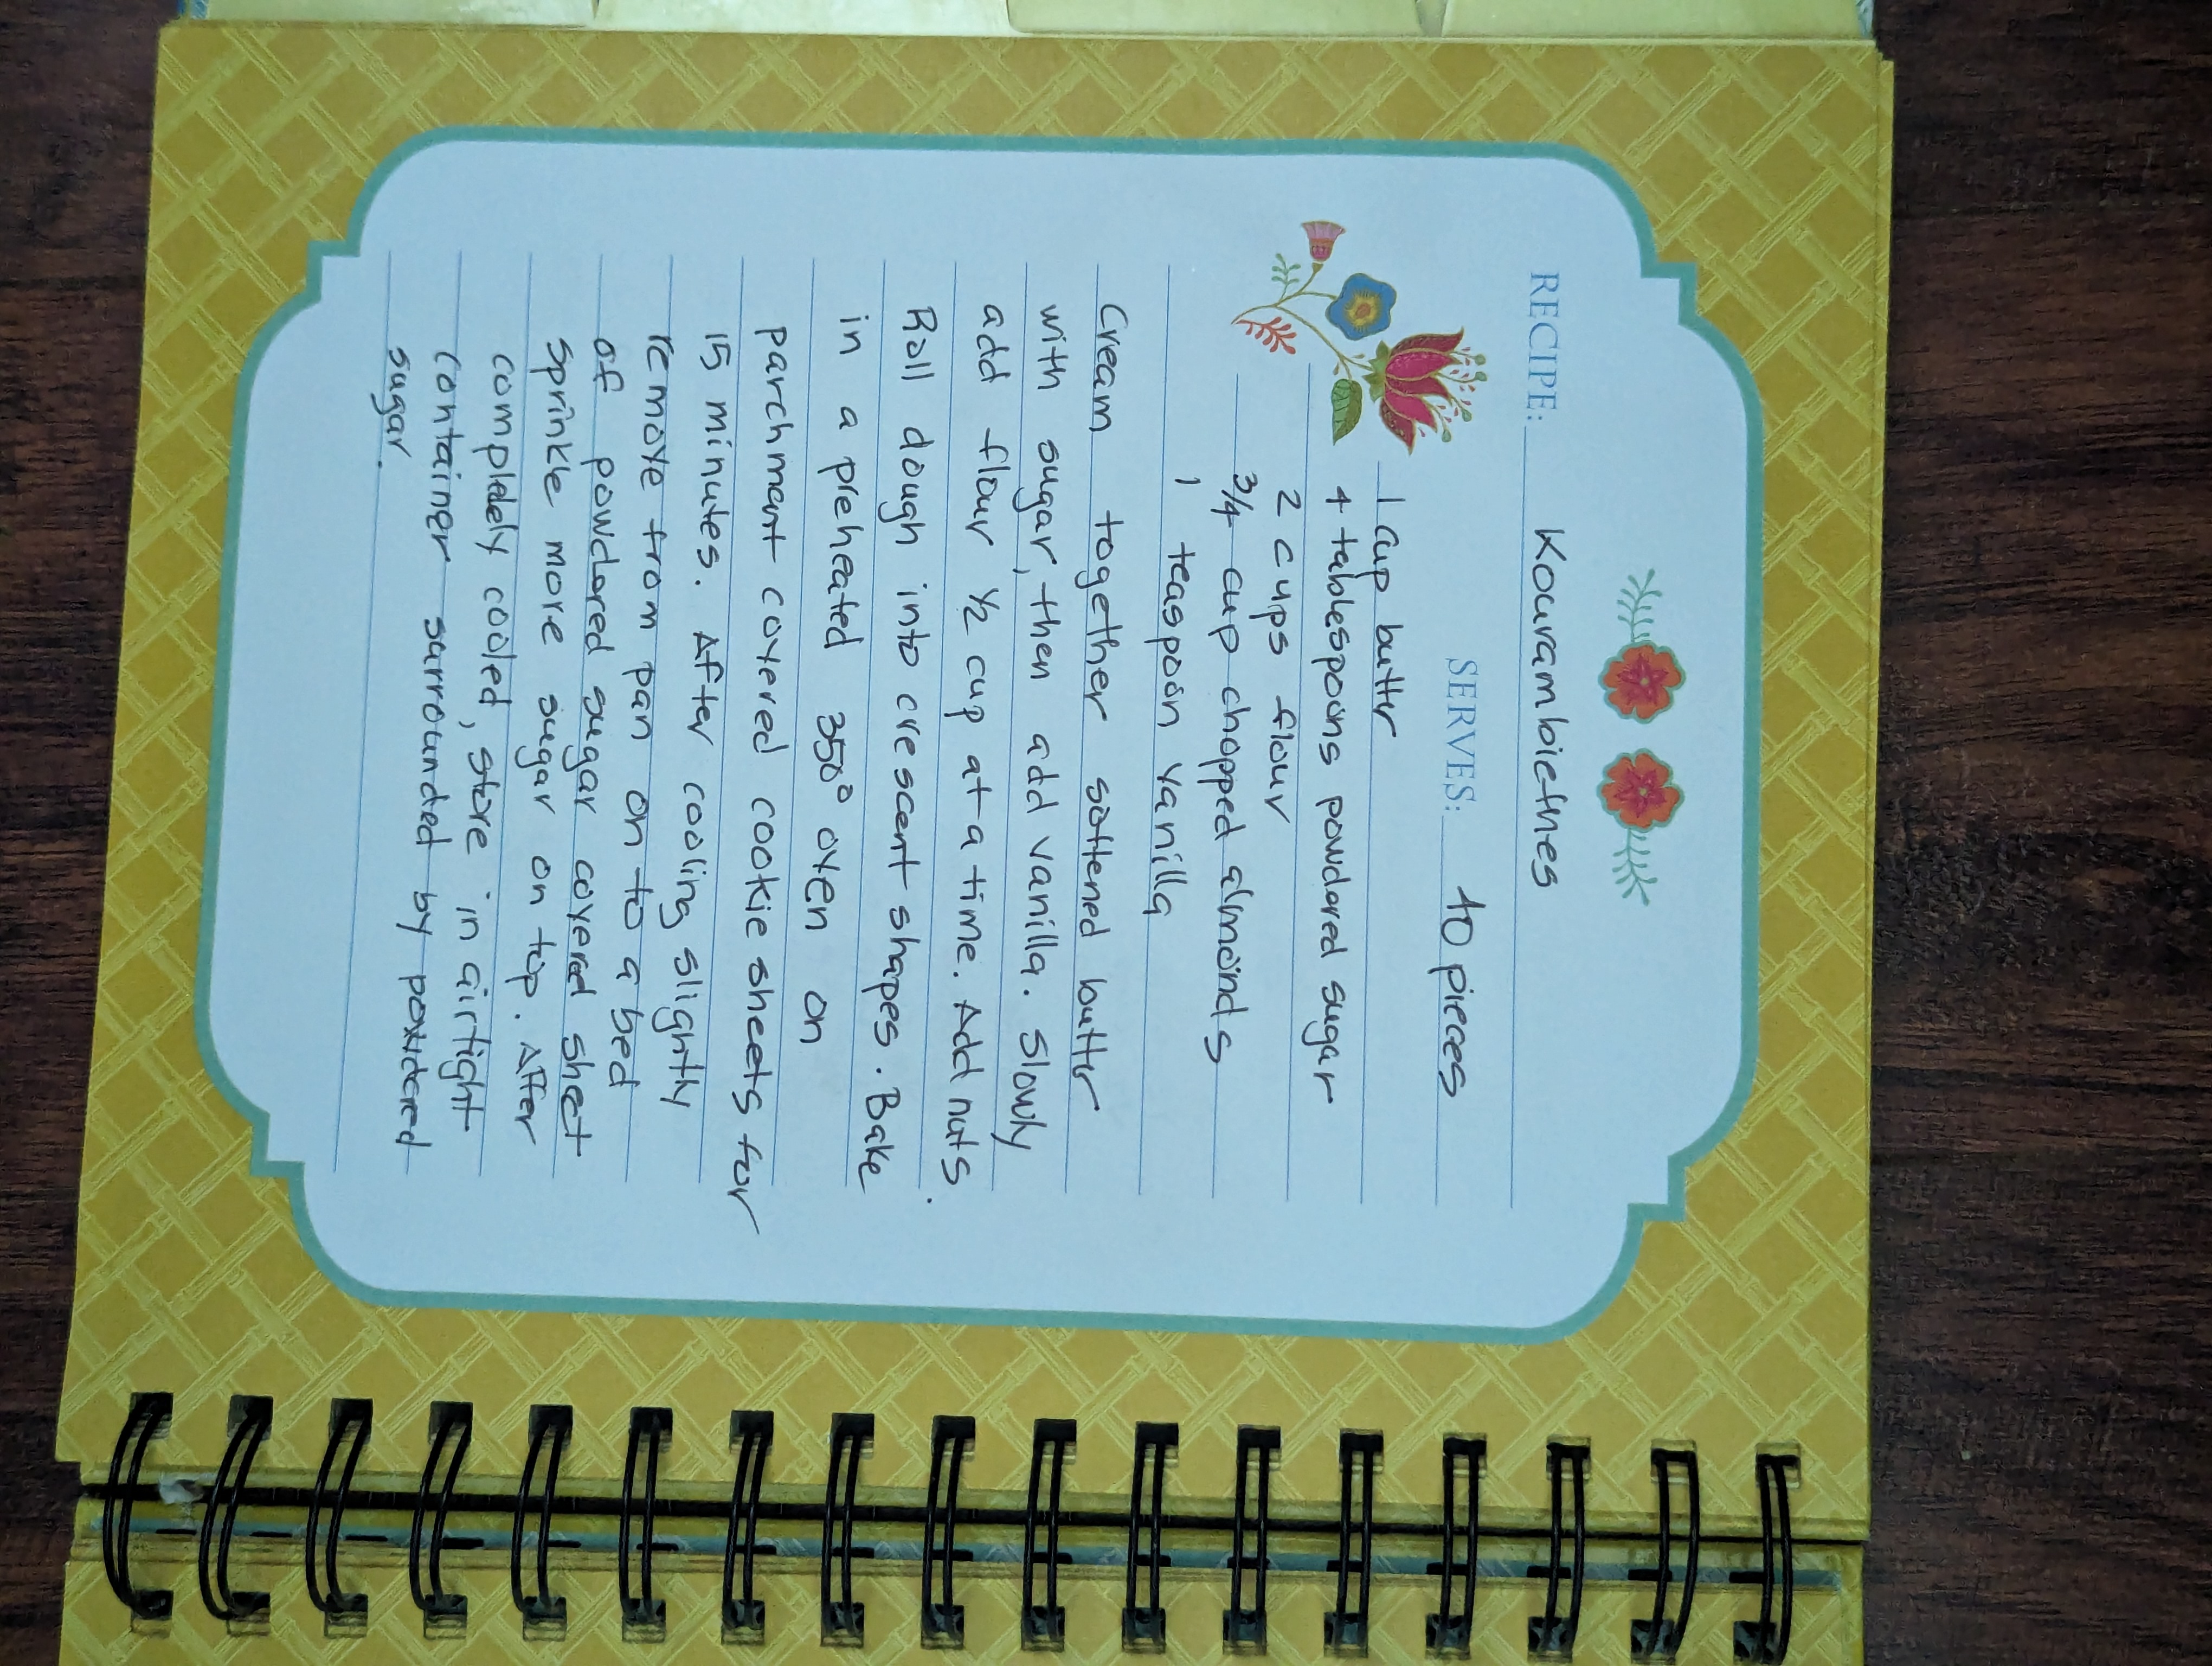 RECIPE: Kourambiethes
SERVES: 40 pieces
1 cup butter
4 tablespoons powdered sugar
2 cups flour
3/4 cup chopped almonds
1 teaspoon vanilla
Cream together softened butter
with sugar, then add vanilla. Slowly
add flour 1/2 cup at a time. Add nuts.
Roll dough into crescent shapes. Bake
in a preheated 350° oven on
parchment covered cookie sheets for
15 minutes. After cooling slightly
remove from pan on to a bed
of powdered sugar covered sheet
sprinkle more sugar on top. After
completely cooled, store in airtight
container surrounded by powdered
sugar.